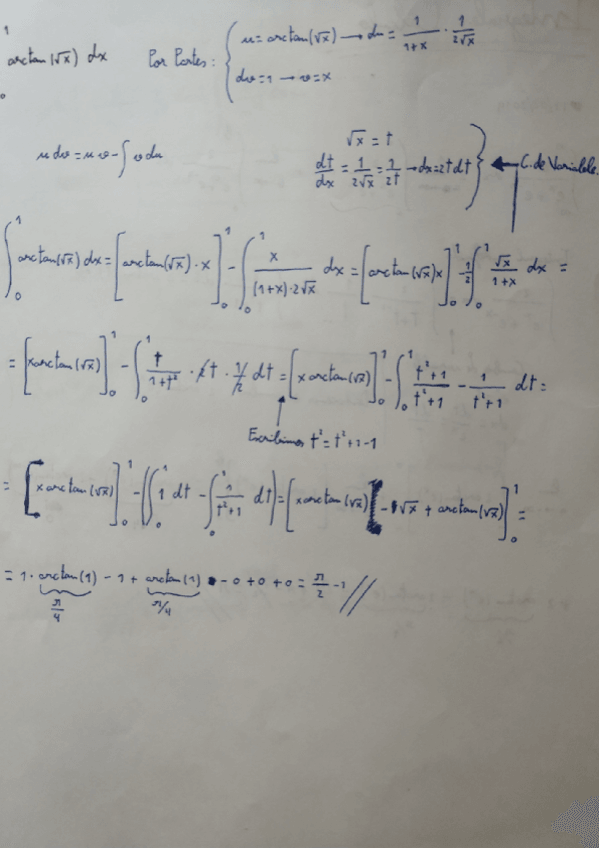 ∫₀¹ arctan(√x) dx Por Partes: { u = arctan(√x) → du = 1/(1+x) · 1/(2√x)
dv = 1 → v = x
u dv = u v - ∫ v du
√x = t
dt/dx = 1/(2√x) = 1/(2t) → dx = 2t dt } ← C. de Variable.
∫₀¹ arctan(√x) dx = [arctan(√x) · x]₀¹ - ∫₀¹ x/((1+x)·2√x) dx = [arctan(√x) x]₀¹ - 1/2 ∫₀¹ √x/(1+x) dx =
= [x arctan(√x)]₀¹ - ∫₀¹ t/(1+t²) · 2t · 1/2 dt = [x arctan(√x)]₀¹ - ∫₀¹ (t²+1)/(t²+1) - 1/(t²+1) dt =
Escribimos t² = t²+1-1
= [x arctan(√x)]₀¹ - (∫₀¹ 1 dt - ∫₀¹ 1/(t²+1) dt) = [x arctan(√x) - √x + arctan(√x)]₀¹ =
= 1 · arctan(1) - 1 + arctan(1) - 0 + 0 + 0 = π/2 - 1 //
π/4 π/4